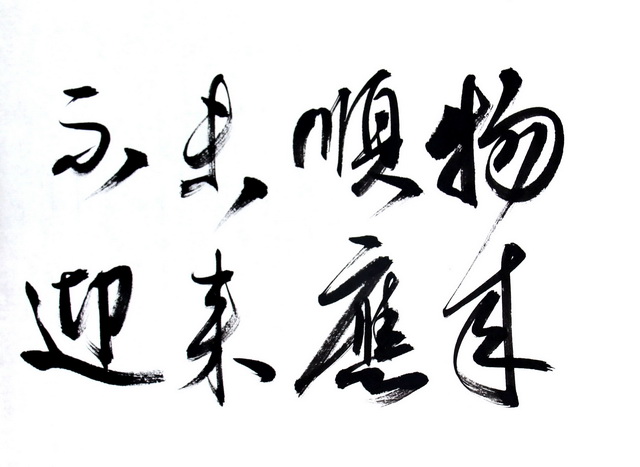 物来
順應
未来
不迎